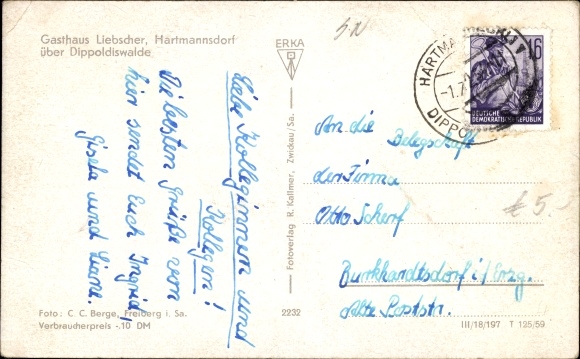 Gasthaus Liebscher, Hartmannsdorf
über Dippoldiswalde
ERKA
16
DEUTSCHE
DEMOKRATISCHE REPUBLIK
HARTMA
-1.7.
DIPPOL
Liebe Kolleginnen und
Kollegen!
Die besten Grüße von
hier sendet Euch Ingrid,
Gisela und Liane.
Fotoverlag R. Kallmer, Zwickau/Sa.
An die Belegschaft
der Firma
Otto Scherf
Burkhardtsdorf i/Erzg.
Alte Poststr.
€ 5.-
Foto: C. C. Berge, Freiberg i. Sa.
Verbraucherpreis -.10 DM
2232
III/18/197 T 125/59